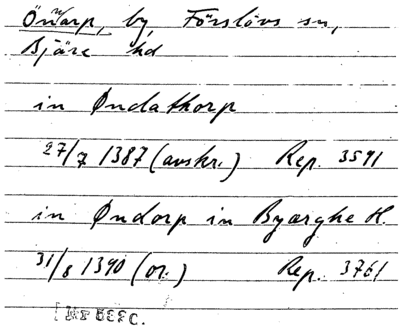 Önnarp, by, Förslövs sn,
Bjäre hd
in Øndathorp
27/7 1387 (avskr.) Rep. 3591
in Øndorp in Byærghe H.
31/8 1390 (or.) Rep. 3761